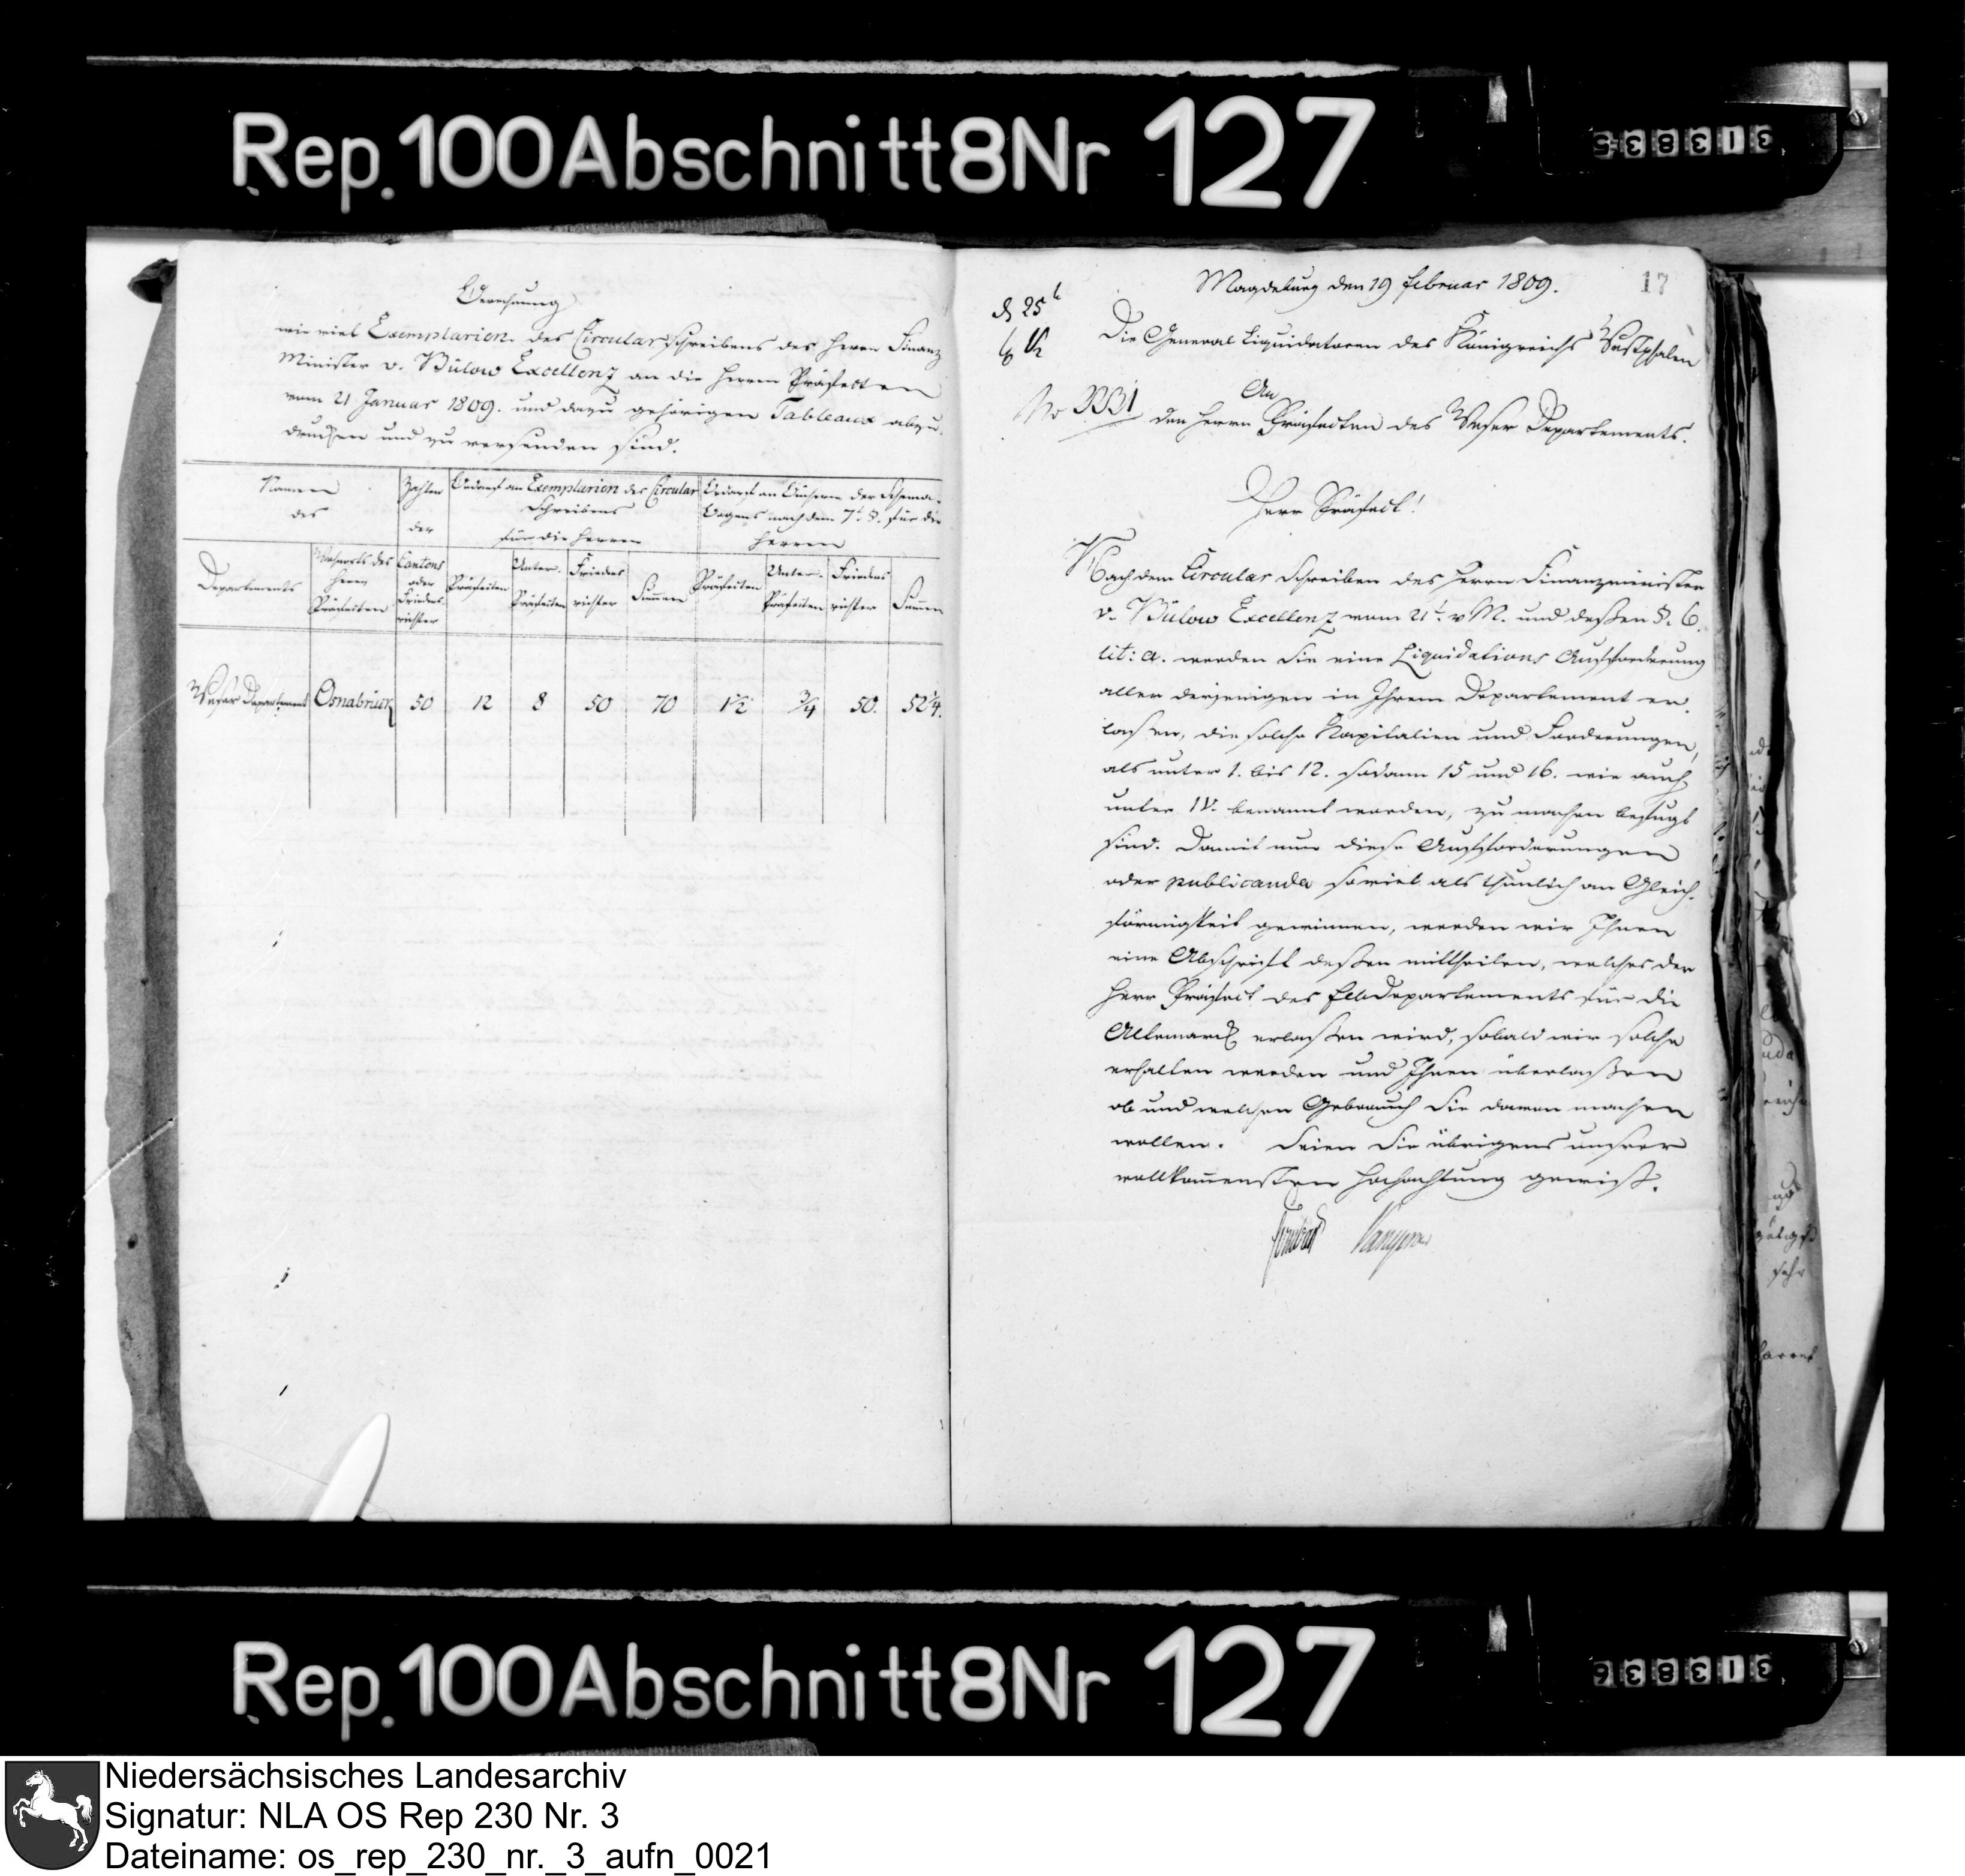 Rep. 100 Abschnitt 8 Nr 127
313835
Berechnung
wie viel Exemplarien des Circularschreibens des Herrn Finanz
Minister v. Bülow Excellenz an die Herrn Präfecten
vom 21 Januar 1809. und dazu gehörigen Tableaux abzu-
drucken und zu versenden sind.
Namen des
Zahlen der
Bedarf an Exemplarien des Circular Schreibens für die Herren
Bedarf an Büchern der Schema-Bogens nach dem 7t. §. für die Herren
Departements
Wohnorts des Herrn Präfecten
Cantons oder Friedensrichter
Präfecten
Unter-Präfecten
Friedensrichter
Summen
Präfecten
Unter-Präfecten
Friedensrichter
Summen
Weser Departement Osnabrück 50 12 8 50 70 1½ ¾ 50. 52¼.
17
Magdeburg den 19 Februar 1809.
Die General Liquidatoren des Königreichs Westphalen
An
No 3331
den Herrn Präfecten des Weser Departements.
Herr Präfect!
Nach dem Circular Schreiben des Herrn Finanzminister
v. Bülow Excellenz vom 21t. v M. und deßen §. 6.
lit: a. werden Sie eine Liquidations Aufforderung
aller derjenigen in Ihrem Departement er-
laßen, die solche Kapitalien und Forderungen,
als unter 1. bis 12. sodann 15 und 16. wie auch
unter IV. benannt worden, zu machen befugt
sind. Damit nun diese Aufforderungen
oder publicanda soviel als thunlich an Gleich-
förmigkeit gewinnen, werden wir Ihnen
eine Abschrift deßen mittheilen, welches der
Herr Präfect des Elbdepartements für die
Altemarck erlaßen wird, sobald wir solche
erhalten werden und Ihnen überlaßen
ob und welchen Gebrauch Sie davon machen
wollen. Seien Sie übrigens unsrer
vollkommensten Hochachtung gewiß.
Rep. 100 Abschnitt 8 Nr 127
313836
Niedersächsisches Landesarchiv
Signatur: NLA OS Rep 230 Nr. 3
Dateiname: os_rep_230_nr._3_aufn_0021